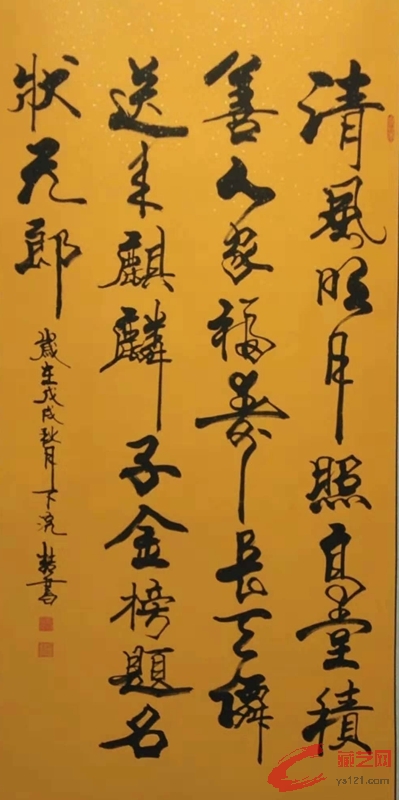 清風明月照高堂積
善人家福寿長天
送来麒麟子金榜題名
状元郎
歲在戊戌秋月下浣書
艺网
ys121.com